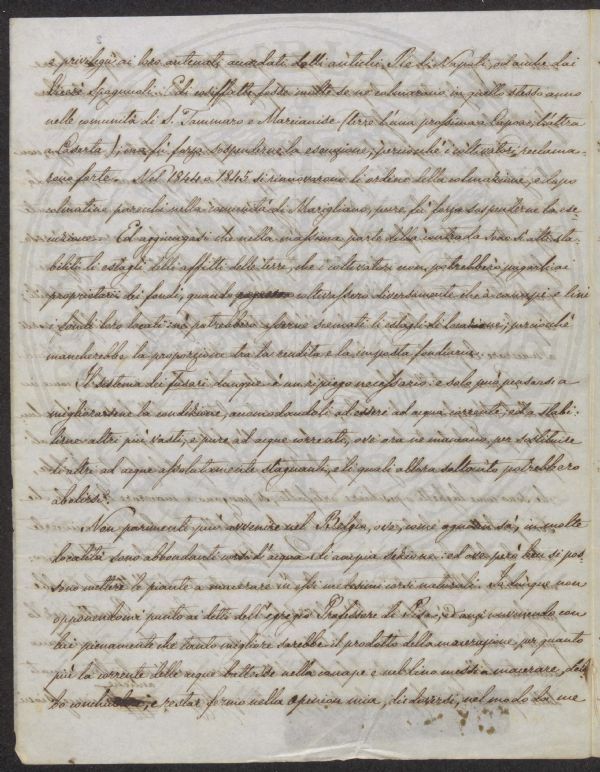 e privilegii ai loro antenati accordati dalli antichi Re di Napoli, od anche dai
Vicerè Spagnuoli. Ed infatti fosse molte se ne colmarono in quello stesso anno
nelle comunità di S. Tammaro e Marcianise (terre l'una prossima a Capoa, l'altra
a Caserta); ma fu forza sospenderne la esecuzione, perciocchè i coltivatori reclama-
rono forte. Nel 1844 e 1845 si rinnovarono li ordini della colmazione, e dopo
colmatine parecchi nella comunità di Marigliano, pure fu forza sospenderne la ese-
cuzione. Ed aggiungasi che nella massima parte della contrada sono sì alti sta-
biliti li estagli delli affitti delle terre, che i coltivatori non potrebbero pagarli ai
proprietarii dei fondi, quando coltivassero diversamente che a canapi e lini
i fondi loro locati: nè potrebbero essere scemati li estagli di locazione, perciocchè
mancherebbe la proporzione tra la rendita e la imposta fondiaria.
Il sistema dei Fusari dunque è un ripiego necessario: e solo può pensarsi a
migliorarsene la condizione, accomodandoli ad essere ad acqua corrente, ed a stabi-
lirne altri più vasti, e pure ad acque correnti, ove ora ne mancano, per sostituire
li altri ad acque assolutamente stagnanti, e li quali allora soltanto potrebbero
abolirsi.
Non parimenti può avvenire nel Belgio, ove, come ognun sa, in molte
località sono abbondanti corsi d'acqua di ampia sezione: ed ove però ben si pos-
sino mettere le piante a macerare in essi medesimi corsi naturali. Io dunque non
opponendomi punto ai detti dell'egregio Professore di Pisa, ed anzi convenendo con
lui pienamente che tanto migliore sarebbe il prodotto della macerazione, per quanto
più la corrente delle acque battesse nella canape e nel lino messi a macerare, deb-
bo conchiudere, e restar fermo nella opinion mia, di doversi, nel modo da me